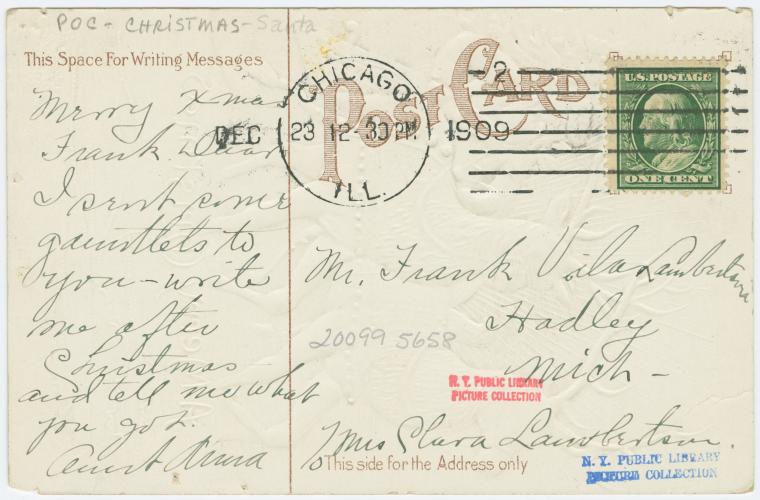 POC - CHRISTMAS - Santa
This Space For Writing Messages
POST CARD
CHICAGO
ILL.
DEC 23 12-30 PM 1909
2
U.S. POSTAGE
ONE CENT
Merry Xmas
Frank Dear
I sent some
gauntlets to
you - write
me after
Christmas
and tell me what
you got.
Aunt
Mr. Frank Lambertson
Hadley
Mich -
% Mrs Clara Lambertson.
20099 5658
N. Y. PUBLIC LIBRARY
PICTURE COLLECTION
This side for the Address only
N. Y. PUBLIC LIBRARY
PICTURE COLLECTION